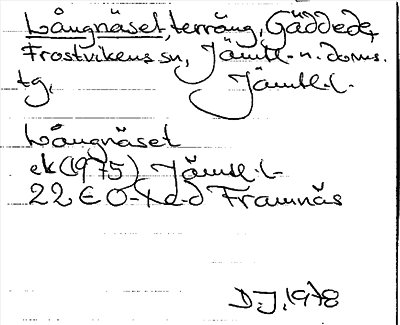 Långnäset, terräng, Gäddede,
Frostvikens sn, Jämtl. n. doms.
tg, Jämtl. l.
Långnäset
ek (1975) Jämtl. l.
22 E 0-1 c-d Framnäs
D.J. 1978